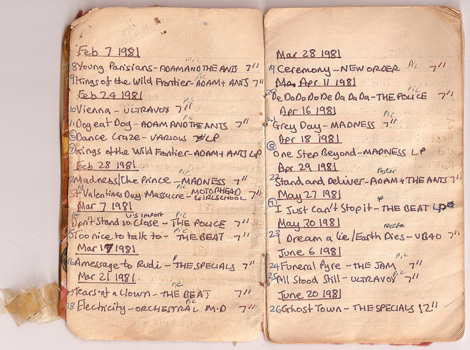 Feb 7 1981
8 Young Parisians - ADAM AND THE ANTS 7"
pic
9 Kings of the Wild Frontier - ADAM + ANTS 7"
Feb 24 1981
10 Vienna - ULTRAVOX 7"
11 Dog eat Dog - ADAM AND THE ANTS 7"
Dance Craze - VARIOUS LP
Kings of the Wild Frontier - ADAM + ANTS LP
Feb 28 1981
pic
Madness/the Prince - MADNESS 7"
St Valentines Day Massacre - MOTORHEAD GIRLSCHOOL 7"
Mar 7 1981
US import pic
Don't stand so Close - THE POLICE 7"
pic
Too nice to talk to - THE BEAT 7"
Mar 17 1981
pic
A message to Rudi - THE SPECIALS 7"
Mar 21 1981
Tears of a Clown - THE BEAT 7"
18 Electricity - ORCHESTRAL M.D 7"
Mar 28 1981
Ceremony - NEW ORDER pic 7"
Apr 11 1981
De Do Do Do De Da Da Da - THE POLICE 7"
Apr 16 1981
pic
Grey Day - MADNESS 7"
Apr 18 1981
One Step Beyond - MADNESS LP
Apr 29 1981
Poster
22 Stand and Deliver - ADAM + THE ANTS 7"
May 27 1981
I Just Can't Stop it - THE BEAT LP
May 30 1981
23 I Dream a lie/Earth Dies - UB40 7"
June 6 1981
pic
24 Funeral Pyre - THE JAM 7"
pic
25 All Stood Still - ULTRAVOX 7"
June 20 1981
26 Ghost Town - THE SPECIALS 12"